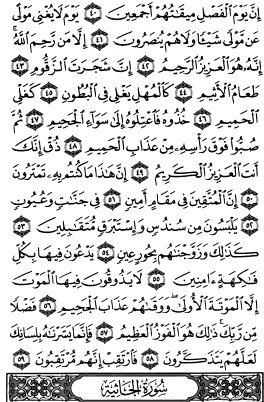 إِنَّ يَوْمَ ٱلْفَصْلِ مِيقَٰتُهُمْ أَجْمَعِينَ ٤٠ يَوْمَ لَا يُغْنِى مَوْلًى
عَن مَّوْلًى شَيْـًٔا وَلَا هُمْ يُنصَرُونَ ٤١ إِلَّا مَن رَّحِمَ ٱللَّهُ ۚ
إِنَّهُۥ هُوَ ٱلْعَزِيزُ ٱلرَّحِيمُ ٤٢ إِنَّ شَجَرَتَ ٱلزَّقُّومِ ٤٣
طَعَامُ ٱلْأَثِيمِ ٤٤ كَٱلْمُهْلِ يَغْلِى فِى ٱلْبُطُونِ ٤٥ كَغَلْىِ
ٱلْحَمِيمِ ٤٦ خُذُوهُ فَٱعْتِلُوهُ إِلَىٰ سَوَآءِ ٱلْجَحِيمِ ٤٧ ثُمَّ
صُبُّوا۟ فَوْقَ رَأْسِهِۦ مِنْ عَذَابِ ٱلْحَمِيمِ ٤٨ ذُقْ إِنَّكَ
أَنتَ ٱلْعَزِيزُ ٱلْكَرِيمُ ٤٩ إِنَّ هَٰذَا مَا كُنتُم بِهِۦ تَمْتَرُونَ
٥٠ إِنَّ ٱلْمُتَّقِينَ فِى مَقَامٍ أَمِينٍ ٥١ فِى جَنَّٰتٍ وَعُيُونٍ
٥٢ يَلْبَسُونَ مِن سُندُسٍ وَإِسْتَبْرَقٍ مُّتَقَٰبِلِينَ ٥٣
كَذَٰلِكَ وَزَوَّجْنَٰهُم بِحُورٍ عِينٍ ٥٤ يَدْعُونَ فِيهَا بِكُلِّ
فَٰكِهَةٍ ءَامِنِينَ ٥٥ لَا يَذُوقُونَ فِيهَا ٱلْمَوْتَ
إِلَّا ٱلْمَوْتَةَ ٱلْأُولَىٰ ۖ وَوَقَىٰهُمْ عَذَابَ ٱلْجَحِيمِ ٥٦ فَضْلًا
مِّن رَّبِّكَ ۚ ذَٰلِكَ هُوَ ٱلْفَوْزُ ٱلْعَظِيمُ ٥٧ فَإِنَّمَا يَسَّرْنَٰهُ بِلِسَانِكَ
لَعَلَّهُمْ يَتَذَكَّرُونَ ٥٨ فَٱرْتَقِبْ إِنَّهُم مُّرْتَقِبُونَ ٥٩
سُورَةُ الجَاثِيَة